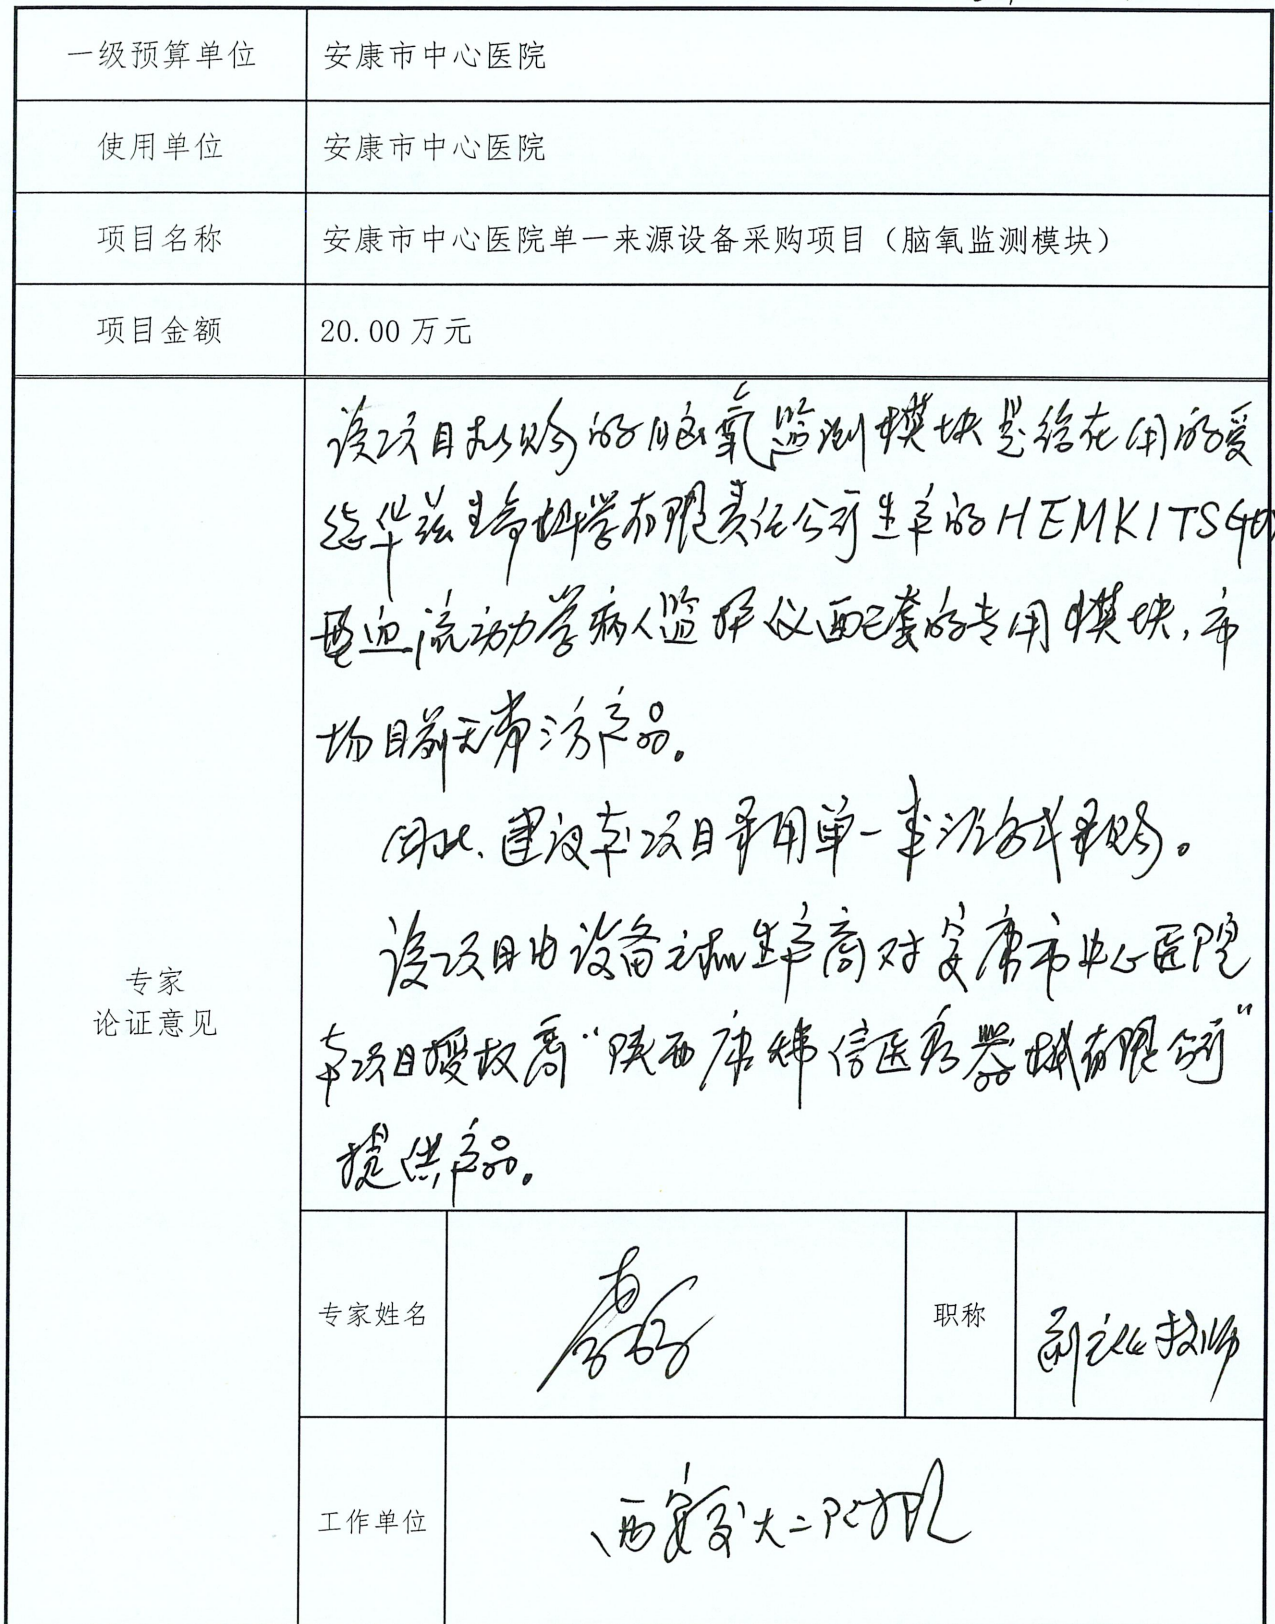 一级预算单位 安康市中心医院
使用单位 安康市中心医院
项目名称 安康市中心医院单一来源设备采购项目（脑氧监测模块）
项目金额 20.00 万元
专家
论证意见
该项目拟购的脑氧监测模块是给在用的爱
德华兹生命科学有限责任公司生产的HEMKITSG
型血流动力学病人监护仪配套的专用模块，市
场目前无替代产品。
因此、建议本项目采用单一来源方式采购。
该项目由设备主机生产商对安康市中心医院
本项目授权商“陕西康 信医疗器械有限公司”
提供产品。
专家姓名
职称 副主任技师
工作单位 西安交大二附院